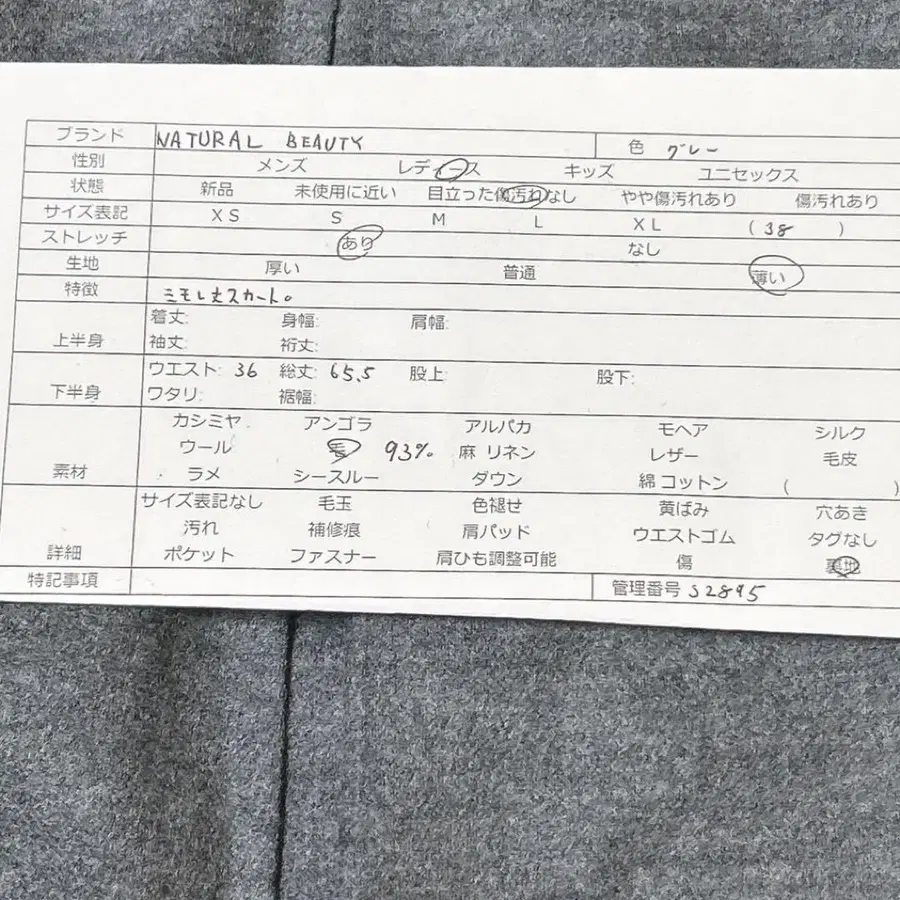 ブランド NATURAL BEAUTY 色 グレー
性別 メンズ レディース キッズ ユニセックス
状態 新品 未使用に近い 目立った傷汚れなし やや傷汚れあり 傷汚れあり
サイズ表記 XS S M L XL (38)
ストレッチ あり なし
生地 厚い 普通 薄い
特徴 ミモレ丈スカート。
上半身 着丈: 身幅: 肩幅:
袖丈: 裄丈:
下半身 ウエスト: 36 総丈: 65.5 股上: 股下:
ワタリ: 裾幅:
素材 カシミヤ アンゴラ アルパカ モヘア シルク
ウール 毛 93% 麻 リネン レザー 毛皮
ラメ シースルー ダウン 綿 コットン ( )
詳細 サイズ表記なし 毛玉 色褪せ 黄ばみ 穴あき
汚れ 補修痕 肩パッド ウエストゴム タグなし
ポケット ファスナー 肩ひも調整可能 傷 裏地
特記事項 管理番号 S2895